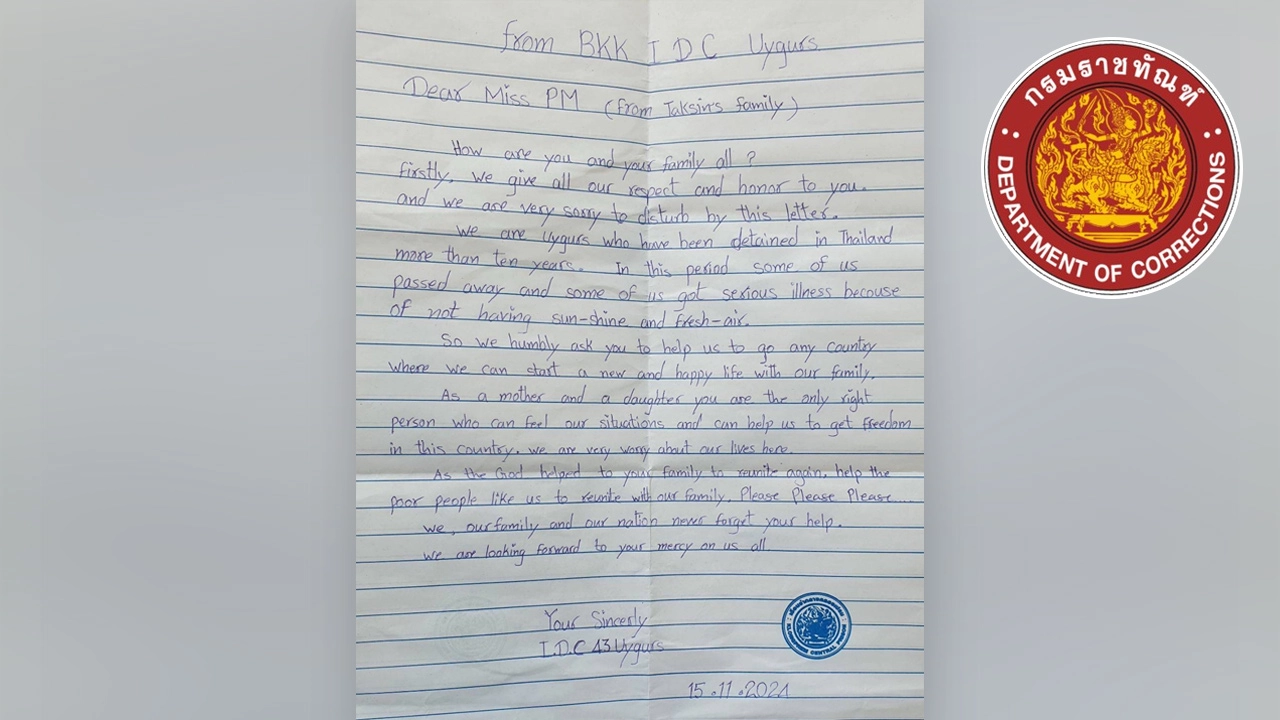 from BKK I D C Uygurs
Dear Miss PM (from Taksin's family)
How are you and your family all ?
Firstly, we give all our respect and honor to you.
and we are very sorry to disturb by this letter.
We are Uygurs who have been detained in Thailand
more than ten years. In this period some of us
passed away and some of us got serious illness becouse
of not having sun-shine and fresh-air.
So we humbly ask you to help us to go any country
where we can start a new and happy life with our family.
As a mother and a daughter you are the only right
person who can feel our situations and can help us to get freedom
in this country. we are very worry about our lives here.
As the God helped to your family to reunite again, help the
poor people like us to reunite with our family. Please Please Please.....
we, our family and our nation never forget your help.
We are looking forward to your mercy on us all.
Your Sincerly
I.D.C 43 Uygurs
15.11.2024
กรมราชทัณฑ์
DEPARTMENT OF CORRECTIONS
CENTRAL PRISON